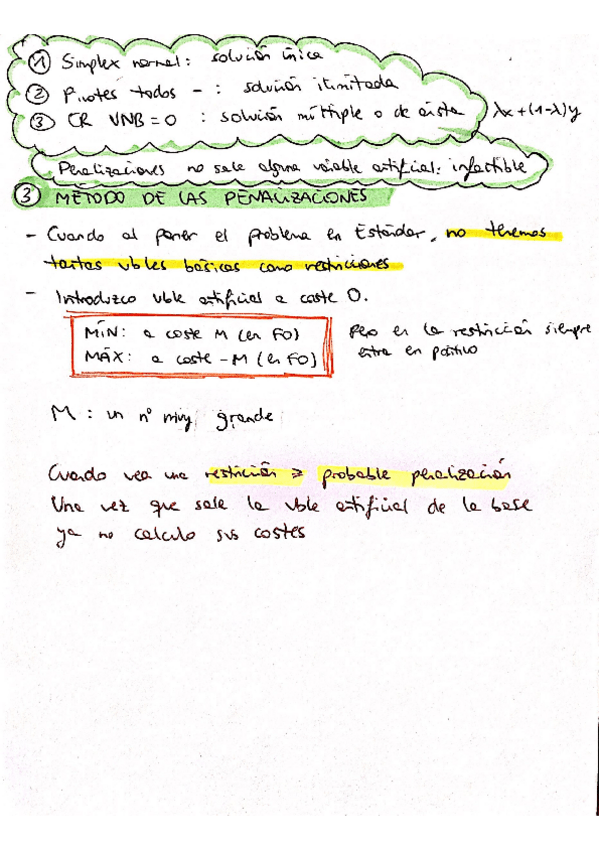 ① Simplex normal: solución única
② Pivotes todos - : solución ilimitada
③ CR VNB = 0 : solución múltiple o de arista λx+(1-λ)y
Penalizaciones no sale alguna variable artificial: infactible
③ MÉTODO DE LAS PENALIZACIONES
- Cuando al poner el problema en Estándar, no tenemos
tantas vbles básicas como restricciones
- Introduzco vble artificial a coste 0.
MÍN: a coste M (en FO)
MÁX: a coste -M (en FO)
pero en la restricción siempre
entra en positivo
M : un nº muy grande
Cuando vea una restricción ≥ probable penalización
Una vez que sale la vble artificial de la base
ya no calculo sus costes